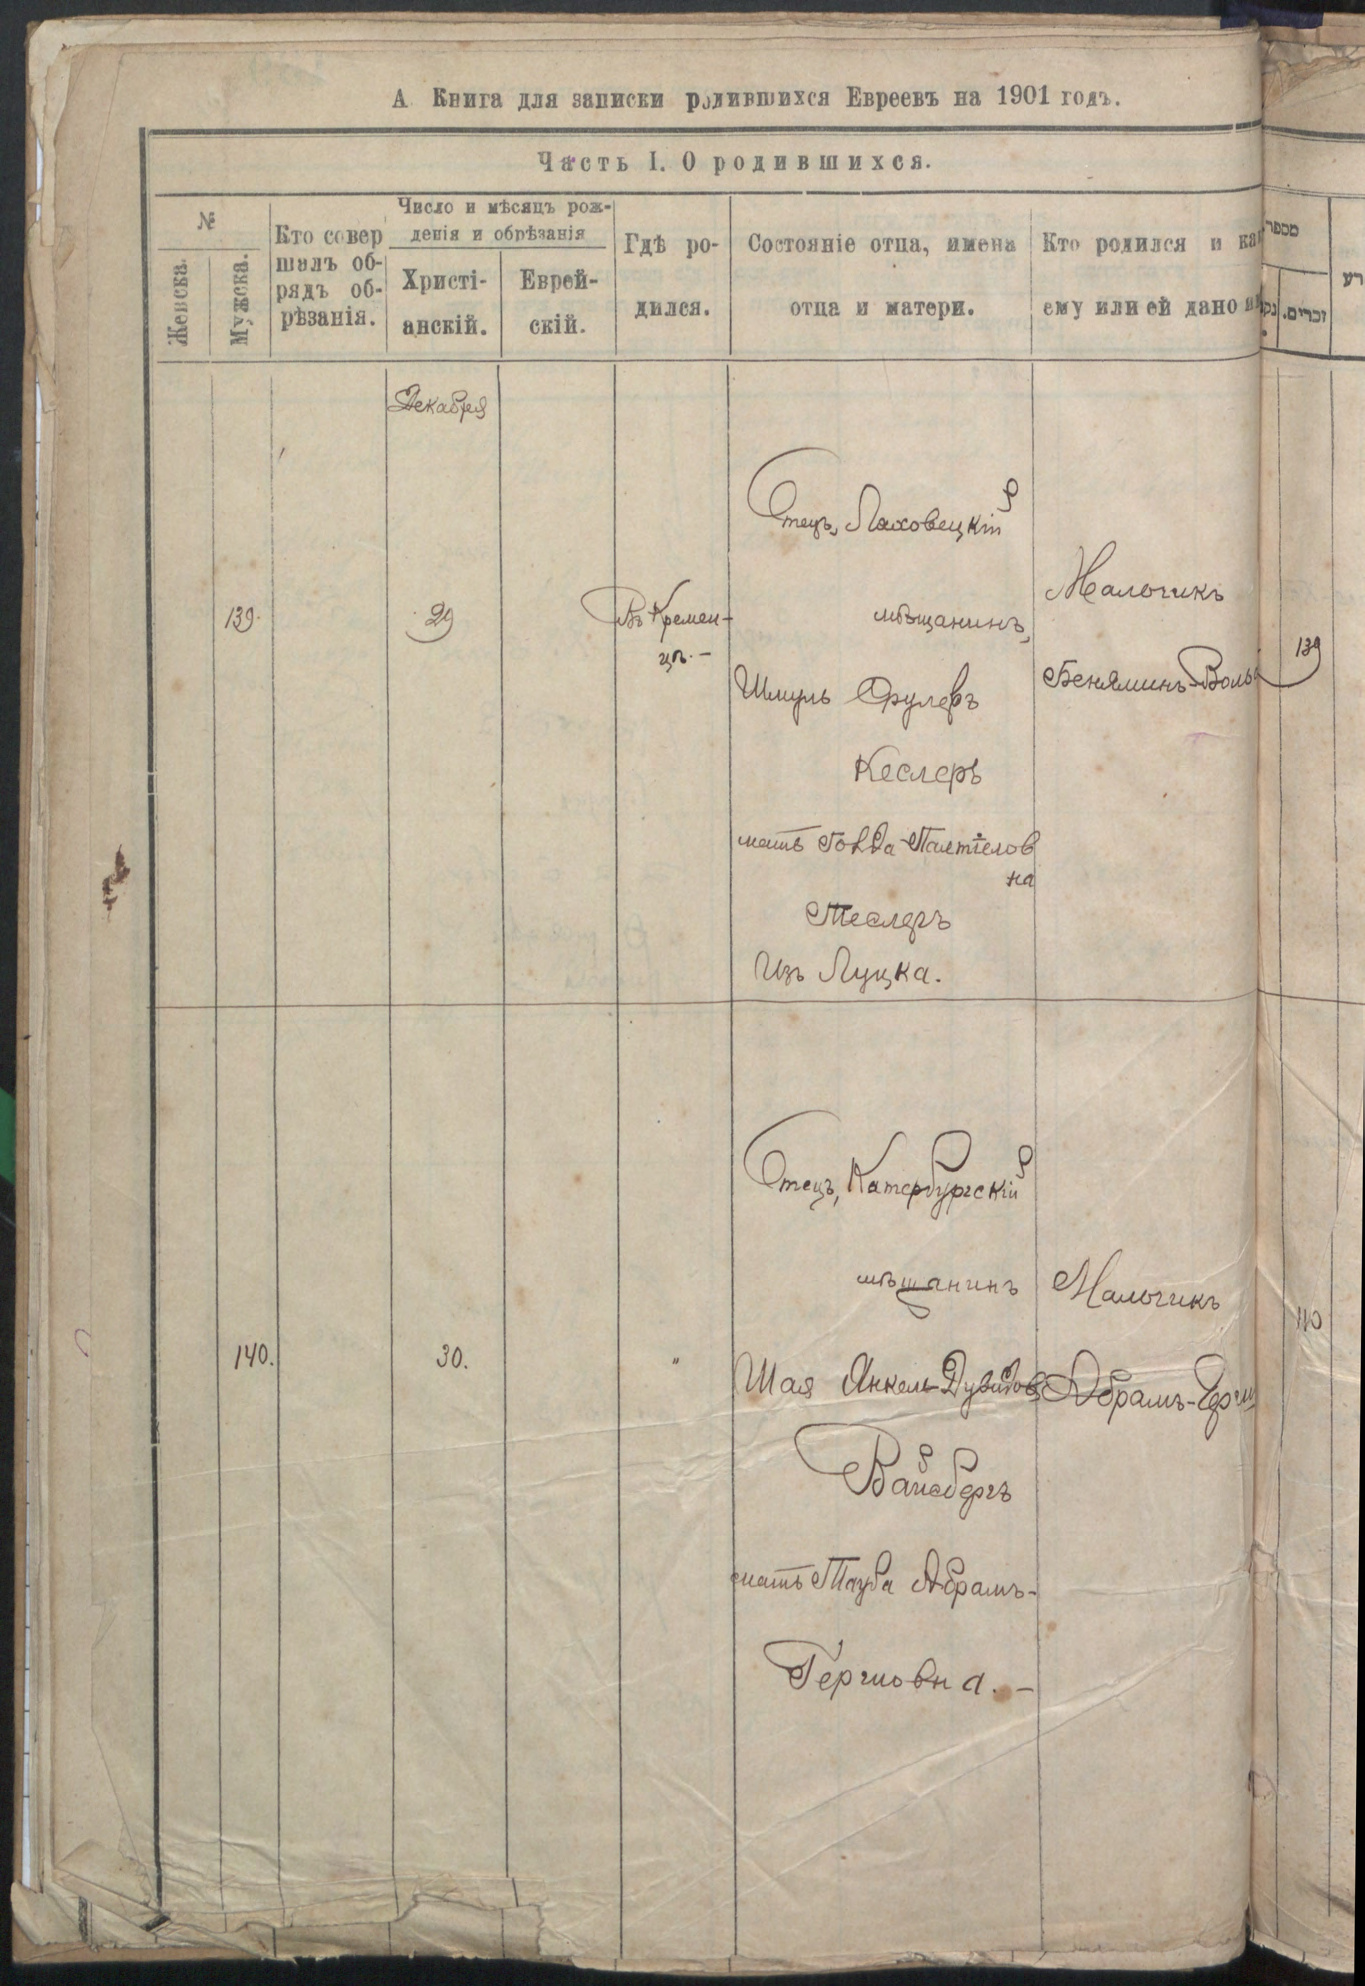 А Книга для записки родившихся Евреевъ на 1901 годъ.
Часть I. О родившихся.
№
Женска.
Мужска.
Кто совер
шалъ об-
рядъ об-
рѣзанія.
Число и мѣсяцъ рож-
денія и обрѣзанія
Христі-
анскій.
Еврей-
скій.
Гдѣ ро-
дился.
Состояніе отца, имена
отца и матери.
Кто родился и ка
ему или ей дано и
מספר
זכרים.
נק
רע
Декабря
139.
29
Въ Кремен-
цѣ.-
Отецъ, Ляховецкій
мѣщанинъ,
Шмуль
Кеслеръ
мать Голда Палтіелов
на
Теслеръ
Изъ Луцка.
Мальчикъ
Беняминъ-Воль
139
140.
30.
"
Отецъ, Катербургскій
мѣщанинъ
Шая Янкель-Дувидов
Вайсбергъ
мать Тауба Абрамъ-
Гершовна.-
Мальчикъ
Абрамъ-
140